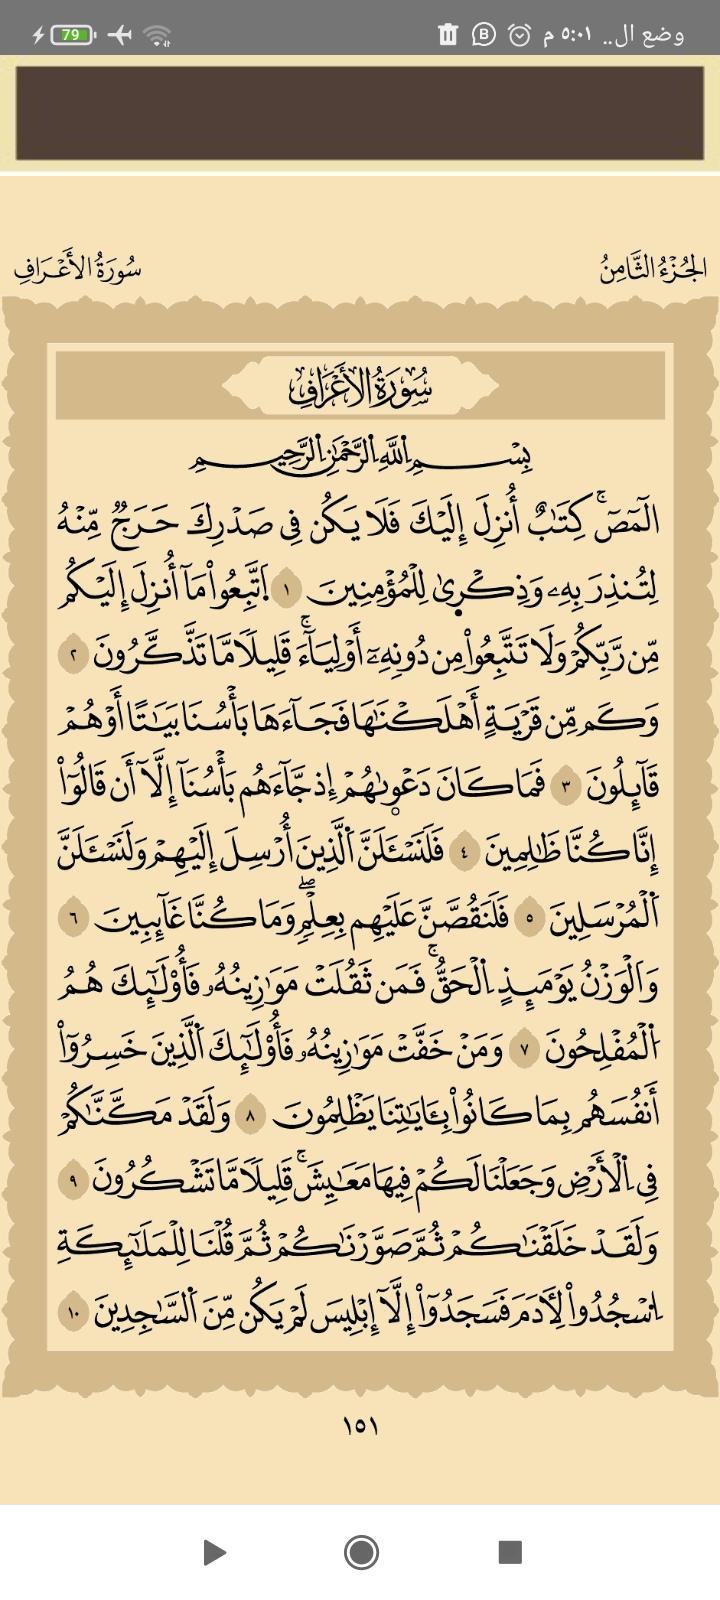 وضع ال.. ٥:٠١ م
79
الجُزْءُ الثَّامِنُ سُورَةُ الأَعْرَافِ
سُورَةُ الأَعْرَافِ
بِسْمِ اللَّهِ الرَّحْمَٰنِ الرَّحِيمِ
الٓمٓصٓۚ كِتَٰبٌ أُنزِلَ إِلَيْكَ فَلَا يَكُن فِى صَدْرِكَ حَرَجٌ مِّنْهُ
لِتُنذِرَ بِهِۦ وَذِكْرٜىٰ لِلْمُؤْمِنِينَ ١ اَ۪تَّبِعُوا۟ مَآ أُنزِلَ إِلَيْكُم
مِّن رَّبِّكُمْ وَلَا تَتَّبِعُوا۟ مِن دُونِهِۦٓ أَوْلِيَآءَۚ قَلِيلًا مَّا تَذَّكَّرُونَ ٢
وَكَم مِّن قَرْيَةٍ أَهْلَكْنَٰهَا فَجَآءَهَا بَأْسُنَا بَيَٰتًا أَوْ هُمْ
قَآئِلُونَ ٣ فَمَا كَانَ دَعْوٜىٰهُمْ إِذ جَّآءَهُم بَأْسُنَآ إِلَّآ أَن قَالُوٓا۟
إِنَّا كُنَّا ظَٰلِمِينَ ٤ فَلَنَسْـَٔلَنَّ اَ۬لَّذِينَ أُرْسِلَ إِلَيْهِمْ وَلَنَسْـَٔلَنَّ
اَ۬لْمُرْسَلِينَ ٥ فَلَنَقُصَّنَّ عَلَيْهِم بِعِلْمٍۖ وَمَا كُنَّا غَآئِبِينَ ٦
وَالْوَزْنُ يَوْمَئِذٍ اِ۬لْحَقُّۚ فَمَن ثَقُلَتْ مَوَٰزِينُهُۥ فَأُو۟لَٰٓئِكَ هُمُ
اُ۬لْمُفْلِحُونَ ٧ وَمَنْ خَفَّتْ مَوَٰزِينُهُۥ فَأُو۟لَٰٓئِكَ اَ۬لَّذِينَ خَسِرُوٓا۟
أَنفُسَهُم بِمَا كَانُوا۟ بِـَٔايَٰتِنَا يَظْلِمُونَ ٨ وَلَقَدْ مَكَّنَّٰكُمْ
فِى اِ۬لْأَرْضِ وَجَعَلْنَا لَكُمْ فِيهَا مَعَٰيِشَۚ قَلِيلًا مَّا تَشْكُرُونَ ٩
وَلَقَدْ خَلَقْنَٰكُمْ ثُمَّ صَوَّرْنَٰكُمْ ثُمَّ قُلْنَا لِلْمَلَٰٓئِكَةِ
اِ۟سْجُدُوا۟ لِأٓدَمَ فَسَجَدُوٓا۟ إِلَّآ إِبْلِيسَ لَمْ يَكُن مِّنَ اَ۬لسَّٰجِدِينَ ١٠
١٥١